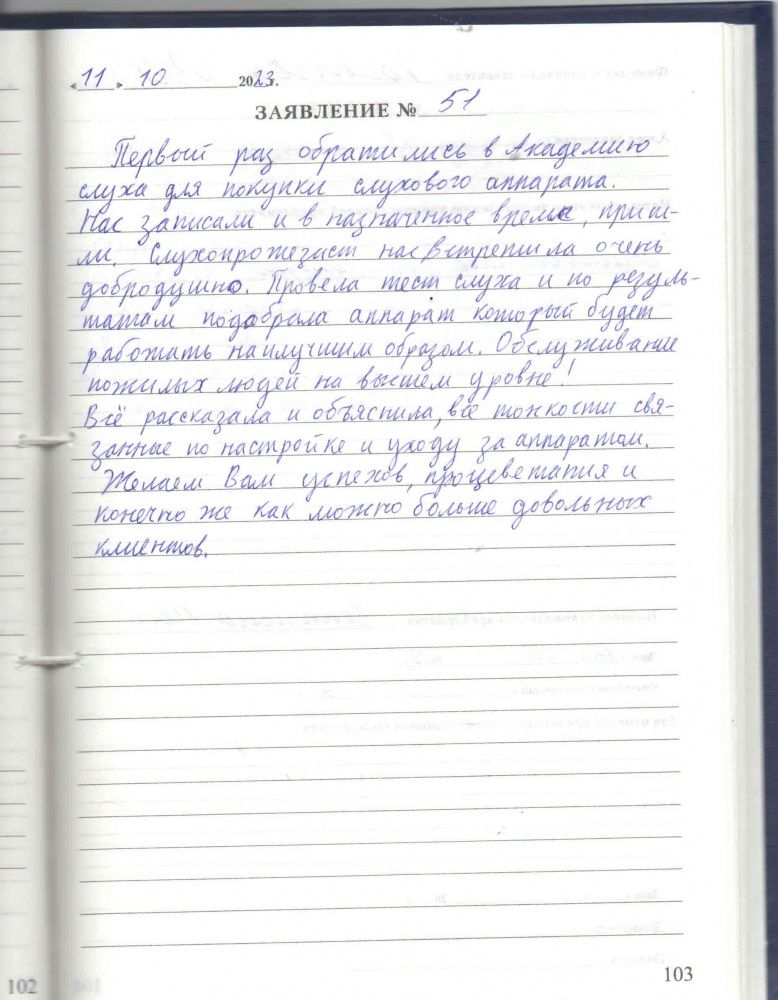 «11» 10 2023г.
ЗАЯВЛЕНИЕ № 51
Первый раз обратились в Академию
слуха для покупки слухового аппарата.
Нас записали и в назначенное время, приш-
ли. Слухопротезист нас встретила очень
добродушно. Провела тест слуха и по резуль-
татам подобрала аппарат который будет
работать наилучшим образом. Обслуживание
пожилых людей на высшем уровне!
Всё рассказала и объяснила, все тонкости свя-
занные по настройке и уходу за аппаратом.
Желаем Вам успехов, процветания и
конечно же как можно больше довольных
клиентов.
102
103